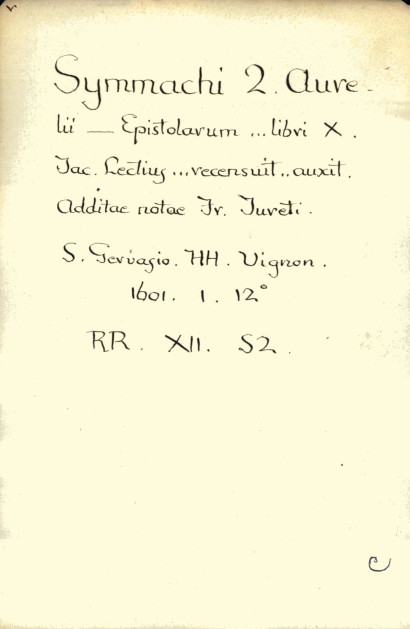 Symmachi 2. Aure-
lii — Epistolarum ... libri X.
Jac. Lectius ... recensuit .. auxit.
Additae notae Fr. Jureti.
S. Gervasio. HH. Vignon.
1601. 1. 12°
RR. XII. S2.